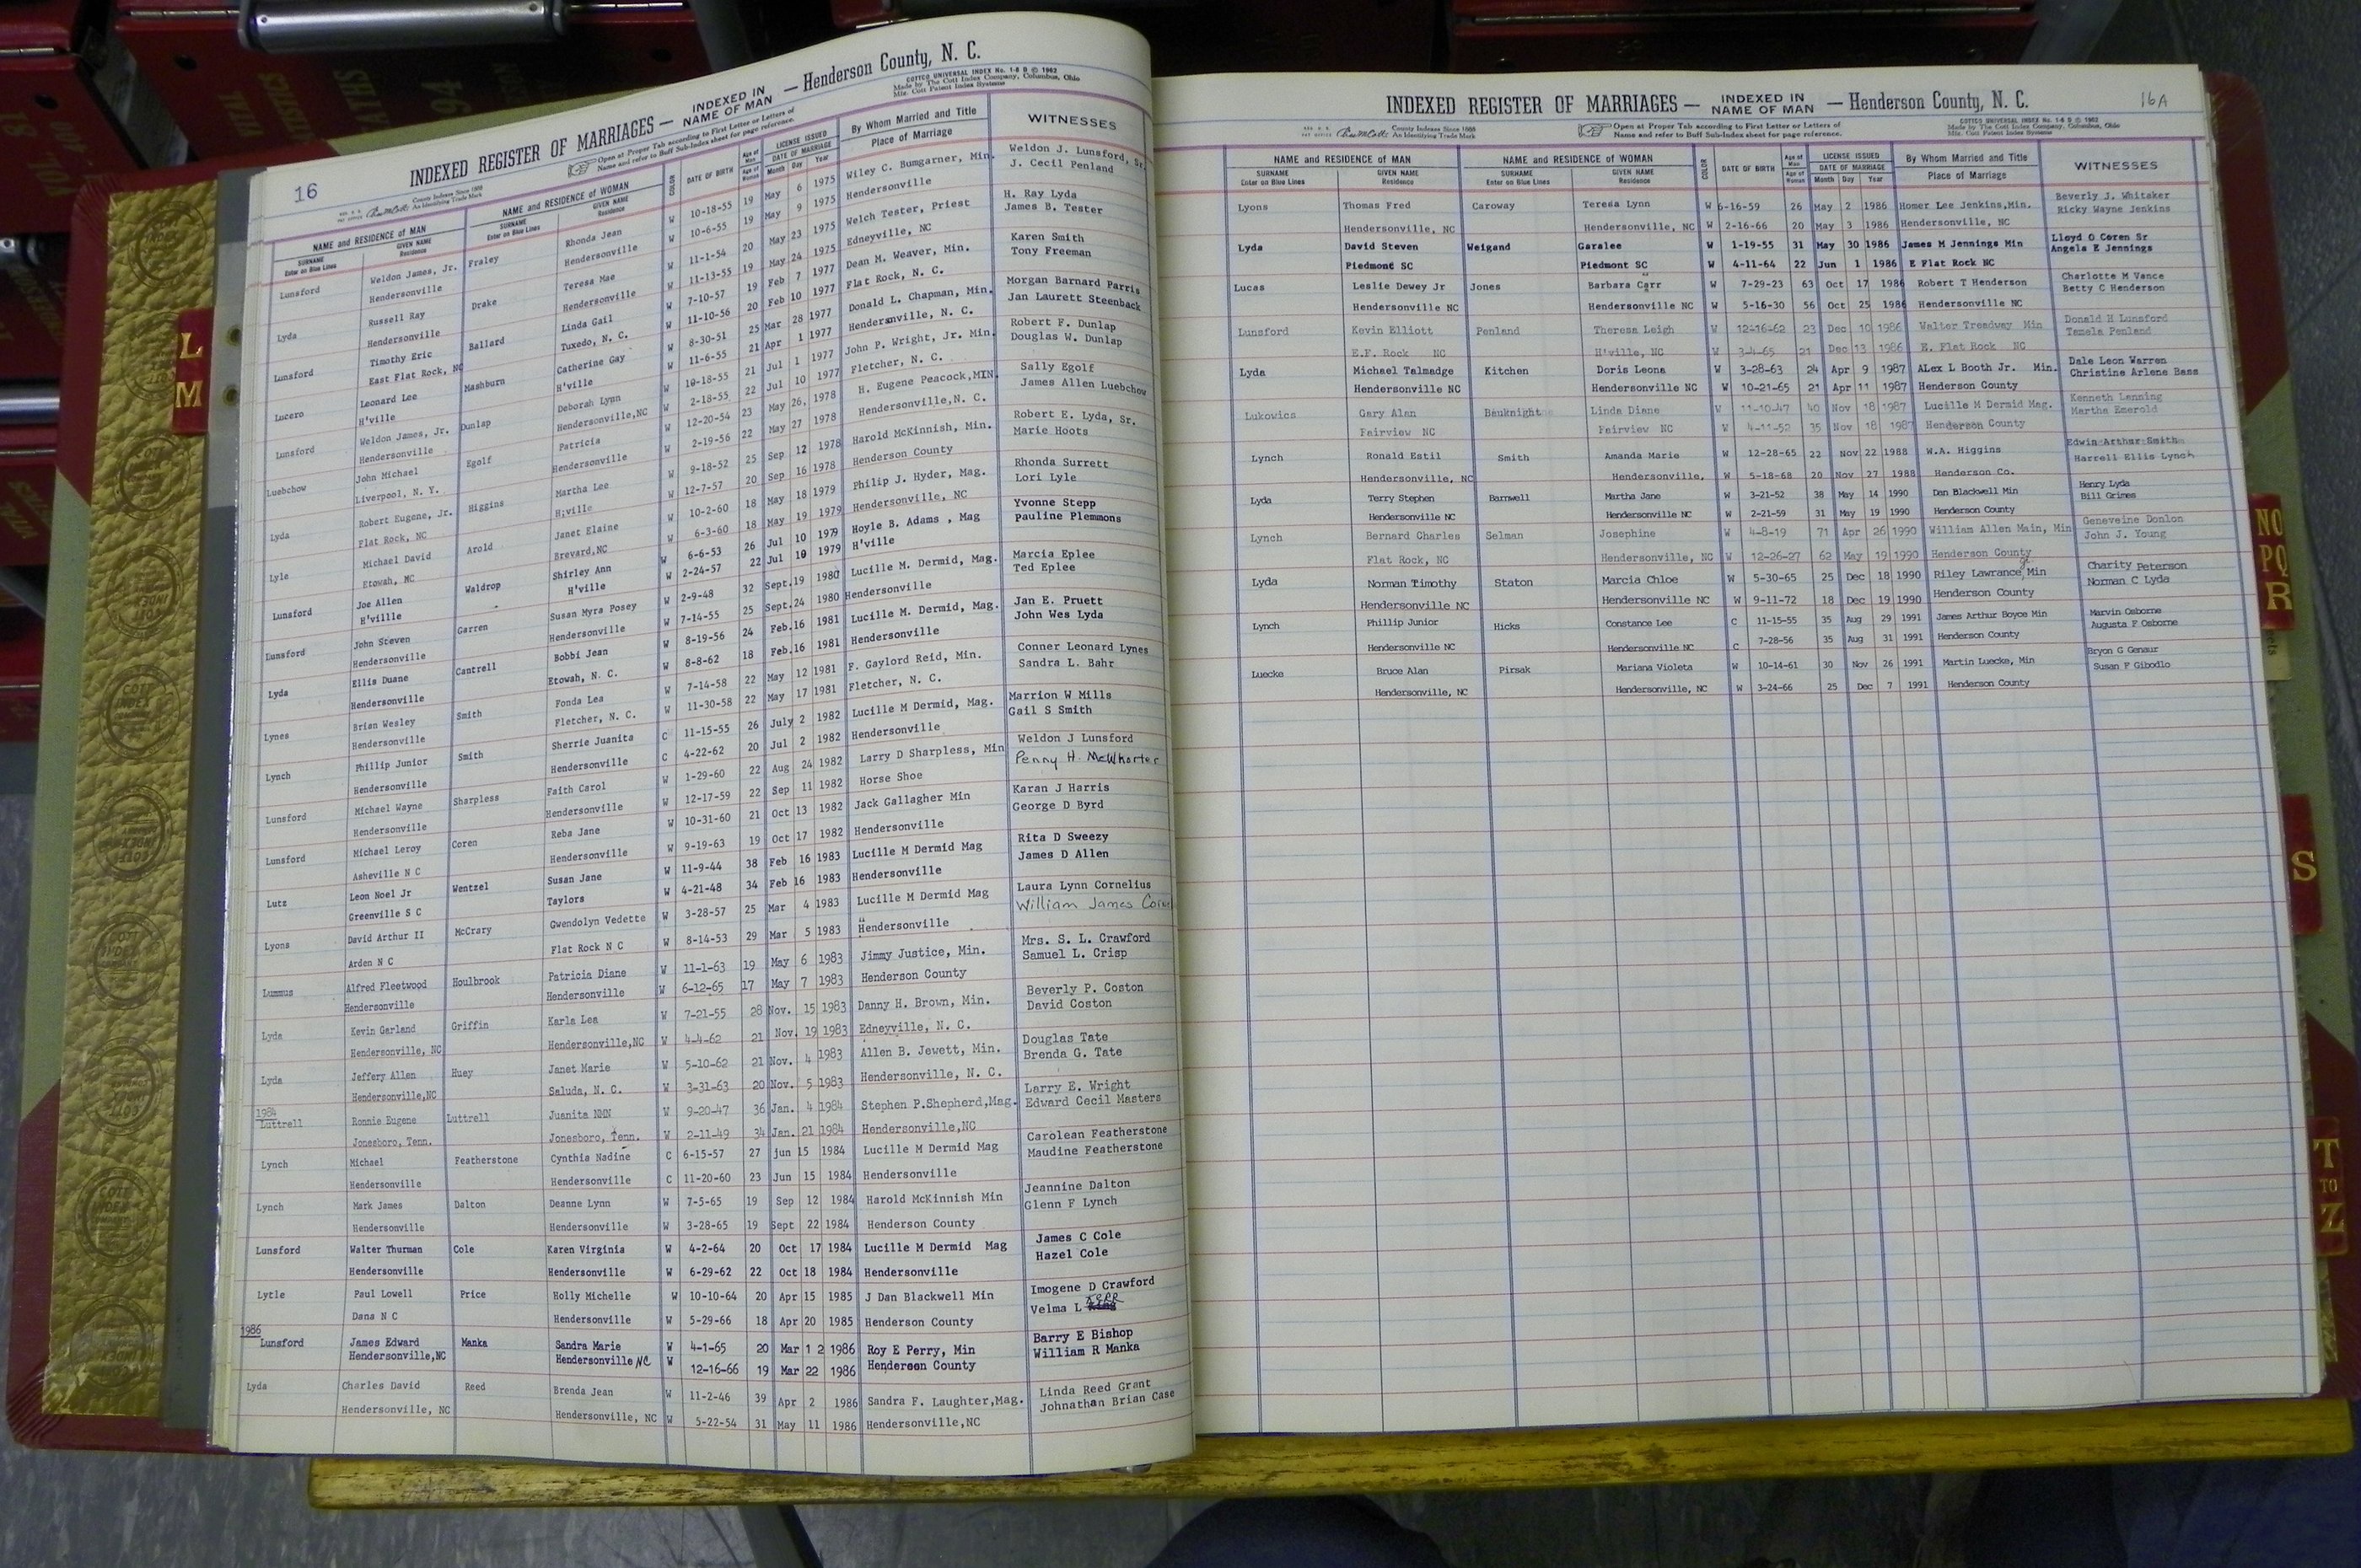 16
INDEXED REGISTER OF MARRIAGES — INDEXED IN NAME OF MAN — Henderson County, N. C.
Open at Proper Tab according to First Letter or Letters of
Name and refer to Buff Sub-Index sheet for page reference.
COTTCO UNIVERSAL INDEX No. 1-6 D © 1962
Made by The Cott Index Company, Columbus, Ohio
Mfg. Cott Patent Index Systems
County Indexes Since 1888
An Identifying Trade Mark
NAME and RESIDENCE OF MAN NAME and RESIDENCE OF WOMAN COLOR DATE OF BIRTH Age of Man LICENSE ISSUED By Whom Married and Title WITNESSES
SURNAME GIVEN NAME SURNAME GIVEN NAME Age of Woman DATE OF MARRIAGE Place of Marriage
Enter on Blue Lines Residence Enter on Blue Lines Residence Month Day Year
Lunsford Weldon James, Jr. Fraley Rhonda Jean W 10-18-55 19 May 6 1975 Wiley C. Bumgarner, Min. Weldon J. Lunsford, Sr.
Hendersonville Hendersonville W 10-6-55 19 May 9 1975 Hendersonville J. Cecil Penland
Lyda Russell Ray Drake Teresa Mae W 11-1-54 20 May 23 1975 Welch Tester, Priest H. Ray Lyda
Hendersonville Hendersonville W 11-13-55 19 May 24 1975 Edneyville, NC James B. Tester
Lunsford Timothy Eric Ballard Linda Gail W 7-10-57 19 Feb 7 1977 Dean M. Weaver, Min. Karen Smith
East Flat Rock, NC Tuxedo, N. C. W 11-10-56 20 Feb 10 1977 Flat Rock, N. C. Tony Freeman
Lucero Leonard Lee Mashburn Catherine Gay W 8-30-51 25 Mar 28 1977 Donald L. Chapman, Min. Morgan Barnard Parris
H'ville H'ville W 11-6-55 21 Apr 1 1977 Hendersnville, N. C. Jan Laurett Steenback
Lunsford Weldon James, Jr. Dunlap Deborah Lynn W 10-18-55 21 Jul 1 1977 John P. Wright, Jr. Min. Robert F. Dunlap
Hendersonville Hendersonville,NC W 2-18-55 22 Jul 10 1977 Fletcher, N. C. Douglas W. Dunlap
Luebchow John Michael Egolf Patricia W 12-20-54 23 May 26, 1978 H. Eugene Peacock,MIN. Sally Egolf
Liverpool, N. Y. Hendersonville W 2-19-56 22 May 27 1978 Hendersonville,N. C. James Allen Luebchow
Lyda Robert Eugene, Jr. Higgins Martha Lee W 9-18-52 25 Sep 12 1978 Harold McKinnish, Min. Robert E. Lyda, Sr.
Flat Rock, NC H;ville W 12-7-57 20 Sep 16 1978 Henderson County Marie Hoots
Lyle Michael David Arold Janet Elaine W 10-2-60 18 May 18 1979 Philip J. Hyder, Mag. Rhonda Surrett
Etowah, NC Brevard,NC W 6-3-60 18 May 19 1979 Hendersonville, NC Lori Lyle
Lunsford Joe Allen Waldrop Shirley Ann W 6-6-53 26 Jul 10 1979 Hoyle B. Adams , Mag Yvonne Stepp
H'villle H'ville W 2-24-57 22 Jul 10 1979 H'ville Pauline Plemmons
Lunsford John Steven Garren Susan Myra Posey W 2-9-48 32 Sept.19 1980 Lucille M. Dermid, Mag. Marcia Eplee
Hendersonville Hendersonville W 7-14-55 25 Sept.24 1980 Hendersonville Ted Eplee
Lyda Ellis Duane Cantrell Bobbi Jean W 8-19-56 24 Feb.16 1981 Lucille M. Dermid, Mag. Jan E. Pruett
Hendersonville Etowah, N. C. W 8-8-62 18 Feb.16 1981 Hendersonville John Wes Lyda
Lynes Brian Wesley Smith Fonda Lea W 7-14-58 22 May 12 1981 F. Gaylord Reid, Min. Conner Leonard Lynes
Hendersonville Fletcher, N. C. W 11-30-58 22 May 17 1981 Fletcher, N. C. Sandra L. Bahr
Lynch Phillip Junior Smith Sherrie Juanita C 11-15-55 26 July 2 1982 Lucille M Dermid, Mag. Marrion W Mills
Hendersonville Hendersonville C 4-22-62 20 Jul 2 1982 Hendersonville Gail S Smith
Lunsford Michael Wayne Sharpless Faith Carol W 1-29-60 22 Aug 24 1982 Larry D Sharpless, Min Weldon J Lunsford
Hendersonville Hendersonville W 12-17-59 22 Sep 11 1982 Horse Shoe Penny H. McWhorter
Lunsford Michael Leroy Coren Reba Jane W 10-31-60 21 Oct 13 1982 Jack Gallagher Min Karan J Harris
Asheville N C Hendersonville W 9-19-63 19 Oct 17 1982 Hendersonville George D Byrd
Lutz Leon Noel Jr Wentzel Susan Jane W 11-9-44 38 Feb 16 1983 Lucille M Dermid Mag Rita D Sweezy
Greenville S C Taylors W 4-21-48 34 Feb 16 1983 Hendersonville James D Allen
Lyons David Arthur II McCrary Gwendolyn Vedette W 3-28-57 25 Mar 4 1983 Lucille M Dermid Mag Laura Lynn Cornelius
Arden N C Flat Rock N C W 8-14-53 29 Mar 5 1983 Hendersonville William James
Lummus Alfred Fleetwood Houlbrook Patricia Diane W 11-1-63 19 May 6 1983 Jimmy Justice, Min. Mrs. S. L. Crawford
Hendersonville Hendersonville W 6-12-65 17 May 7 1983 Henderson County Samuel L. Crisp
Lyda Kevin Garland Griffin Karla Lea W 7-21-55 28 Nov. 15 1983 Danny H. Brown, Min. Beverly P. Coston
Hendersonville, NC Hendersonville,NC W 4-4-62 21 Nov. 19 1983 Edneyville, N. C. David Coston
Lyda Jeffery Allen Huey Janet Marie W 5-10-62 21 Nov. 4 1983 Allen B. Jewett, Min. Douglas Tate
Hendersonville,NC Saluda, N. C. W 3-31-63 20 Nov. 5 1983 Hendersonville, N. C. Brenda G. Tate
1984
Luttrell Ronnie Eugene Luttrell Juanita NMN W 9-20-47 36 Jan. 4 1984 Stephen P.Shepherd,Mag. Larry E. Wright
Jonesboro, Tenn. Jonesboro, Tenn. W 2-11-49 34 Jan. 21 1984 Hendersonville,NC Edward Cecil Masters
Lynch Michael Featherstone Cynthia Nadine C 6-15-57 27 jun 15 1984 Lucille M Dermid Mag Carolean Featherstone
Hendersonville Hendersonville C 11-20-60 23 Jun 15 1984 Hendersonville Maudine Featherstone
Lynch Mark James Dalton Deanne Lynn W 7-5-65 19 Sep 12 1984 Harold McKinnish Min Jeannine Dalton
Hendersonville Hendersonville W 3-28-65 19 Sept 22 1984 Henderson County Glenn F Lynch
Lunsford Walter Thurman Cole Karen Virginia W 4-2-64 20 Oct 17 1984 Lucille M Dermid Mag James C Cole
Hendersonville Hendersonville W 6-29-62 22 Oct 18 1984 Hendersonville Hazel Cole
Lytle Paul Lowell Price Holly Michelle W 10-10-64 20 Apr 15 1985 J Dan Blackwell Min Imogene D Crawford
Dana N C Hendersonville W 5-29-66 18 Apr 20 1985 Henderson County Velma L
1986
Lunsford James Edward Manka Sandra Marie W 4-1-65 20 Mar 1 2 1986 Roy E Perry, Min Barry E Bishop
Hendersonville,NC Hendersonville NC W 12-16-66 19 Mar 22 1986 Henderson County William R Manka
Lyda Charles David Reed Brenda Jean W 11-2-46 39 Apr 2 1986 Sandra F. Laughter,Mag. Linda Reed Grant
Hendersonville, NC Hendersonville, NC W 5-22-54 31 May 11 1986 Hendersonville,NC Johnathan Brian Case
16A
INDEXED REGISTER OF MARRIAGES — INDEXED IN NAME OF MAN — Henderson County, N. C.
County Indexes Since 1888
An Identifying Trade Mark
Open at Proper Tab according to First Letter or Letters of
Name and refer to Buff Sub-Index sheet for page reference.
COTTCO UNIVERSAL INDEX No. 1-6 D © 1962
Made by The Cott Index Company, Columbus, Ohio
Mfg. Cott Patent Index Systems
NAME and RESIDENCE OF MAN NAME and RESIDENCE OF WOMAN COLOR DATE OF BIRTH Age of Man LICENSE ISSUED By Whom Married and Title WITNESSES
SURNAME GIVEN NAME SURNAME GIVEN NAME Age of Woman DATE OF MARRIAGE Place of Marriage
Enter on Blue Lines Residence Enter on Blue Lines Residence Month Day Year
Lyons Thomas Fred Caroway Teresa Lynn W 6-16-59 26 May 2 1986 Homer Lee Jenkins,Min. Beverly J. Whitaker
Hendersonville, NC Hendersonville, NC W 2-16-66 20 May 3 1986 Hendersonville, NC Ricky Wayne Jenkins
Lyda David Steven Weigand Garalee W 1-19-55 31 May 30 1986 James M Jennings Min Lloyd O Coren Sr
Piedmont SC Piedmont SC W 4-11-64 22 Jun 1 1986 E Flat Rock NC Angela E Jennings
Lucas Leslie Dewey Jr Jones Barbara Carr W 7-29-23 63 Oct 17 1986 Robert T Henderson Charlotte M Vance
Hendersonville NC Hendersonville NC W 5-16-30 56 Oct 25 1986 Hendersonville NC Betty C Henderson
Lunsford Kevin Elliott Penland Theresa Leigh W 12-16-62 23 Dec 10 1986 Walter Treadway Min Donald H Lunsford
E.F. Rock NC H'ville, NC W 3-4-65 21 Dec 13 1986 E. Flat Rock NC Tamela Penland
Lyda Michael Talmadge Kitchen Doris Leona W 3-28-63 24 Apr 9 1987 ALex L Booth Jr. Min. Dale Leon Warren
Hendersonville NC Hendersonville NC W 10-21-65 21 Apr 11 1987 Henderson County Christine Arlene Bass
Lukovics Gary Alan Bauknight Linda Diane W 11-10-47 40 Nov 18 1987 Lucille M Dermid Mag. Kenneth Lanning
Fairview NC Fairview NC W 4-11-52 35 Nov 18 1987 Henderson County Martha Emerold
Lynch Ronald Estil Smith Amanda Marie W 12-28-65 22 Nov 22 1988 W.A. Higgins Edwin Arthur Smith
Hendersonville, NC Hendersonville, W 5-18-68 20 Nov 27 1988 Henderson Co. Harrell Ellis Lynch
Lyda Terry Stephen Barnwell Martha Jane W 3-21-52 38 May 14 1990 Dan Blackwell Min Henry Lyda
Hendersonville NC Hendersonville NC W 2-21-59 31 May 19 1990 Henderson County Bill Grimes
Lynch Bernard Charles Selman Josephine W 4-8-19 71 Apr 26 1990 William Allen Main, Min Geneveine Donlon
Flat Rock, NC Hendersonville, NC W 12-26-27 62 May 19 1990 Henderson County John J. Young
Lyda Norman Timothy Staton Marcia Chloe W 5-30-65 25 Dec 18 1990 Riley Lawrance Min Charity Peterson
Hendersonville NC Hendersonville NC W 9-11-72 18 Dec 19 1990 Henderson County Norman C Lyda
Lynch Phillip Junior Hicks Constance Lee C 11-15-55 35 Aug 29 1991 James Arthur Boyce Min Marvin Osborne
Hendersonville NC Hendersonville NC C 7-28-56 35 Aug 31 1991 Henderson County Augusta F Osborne
Luecke Bruce Alan Pirsak Mariana Violeta W 10-14-61 30 Nov 26 1991 Martin Luecke, Min Bryon G Genaur
Hendersonville, NC Hendersonville, NC W 3-24-66 25 Dec 7 1991 Henderson County Susan F Gibodlo
L
M
NO
PQ
R
S
T
TO
Z